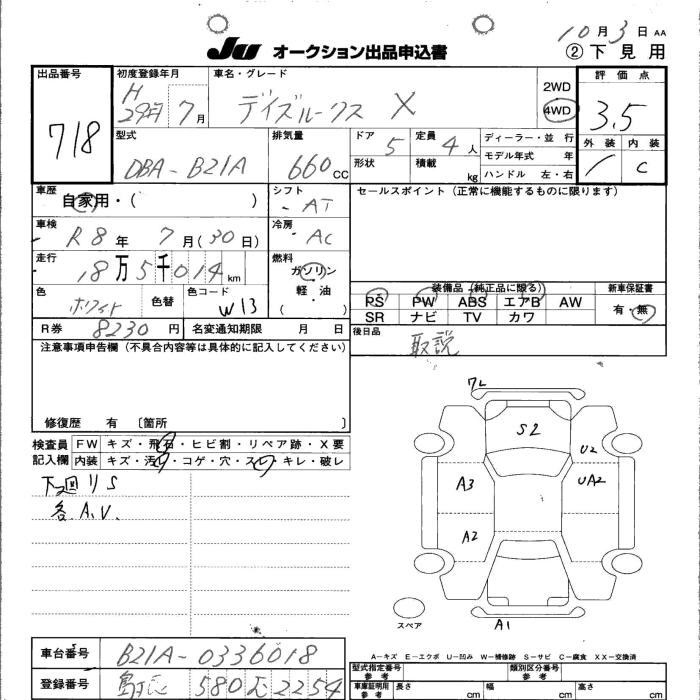 10月3日 AA
JU オークション出品申込書
②下見用
出品番号
718
初度登録年月
H29年7月
車名・グレード
デイズルークス X
2WD
4WD
評価点
3.5
外装 内装
1 C
型式
DBA-B21A
排気量
660 CC
ドア 5
形状
定員 4人
積載 kg
ディーラー・並行
モデル年式 年
ハンドル 左・右
車歴
自家用・( )
シフト
AT
セールスポイント(正常に機能するものに限ります)
車検
R8年7月(30日)
冷房
AC
走行
18万5千014km
燃料
ガソリン
軽・油
( )
色
ホワイト
色替
色コード
W13
装備品(純正品に限る)
新車保証書
PS PW ABS エアB AW
SR ナビ TV カワ
有・無
R券 8230円
名変通知期限 月 日
後日品
取説
注意事項申告欄(不具合内容等は具体的に記入してください)
修復歴 有 〔箇所 〕
検査員記入欄
FW キズ・飛石・ヒビ割・リペア跡・X要
内装 キズ・汚れ・コゲ・穴・スレ・キレ・破レ
下廻りS
各A.V.
ワレ
S2
U2
A3
UA2
A2
A1
スペア
A-キズ E-エクボ U-凹み W-補修跡 S-サビ C-腐食 XX-交換済
車台番号
B21A-0336018
登録番号
580 え 2254
型式指定番号
参考
類別区分番号
参考
車庫証明用
参考
長さ cm
幅 cm
高さ cm